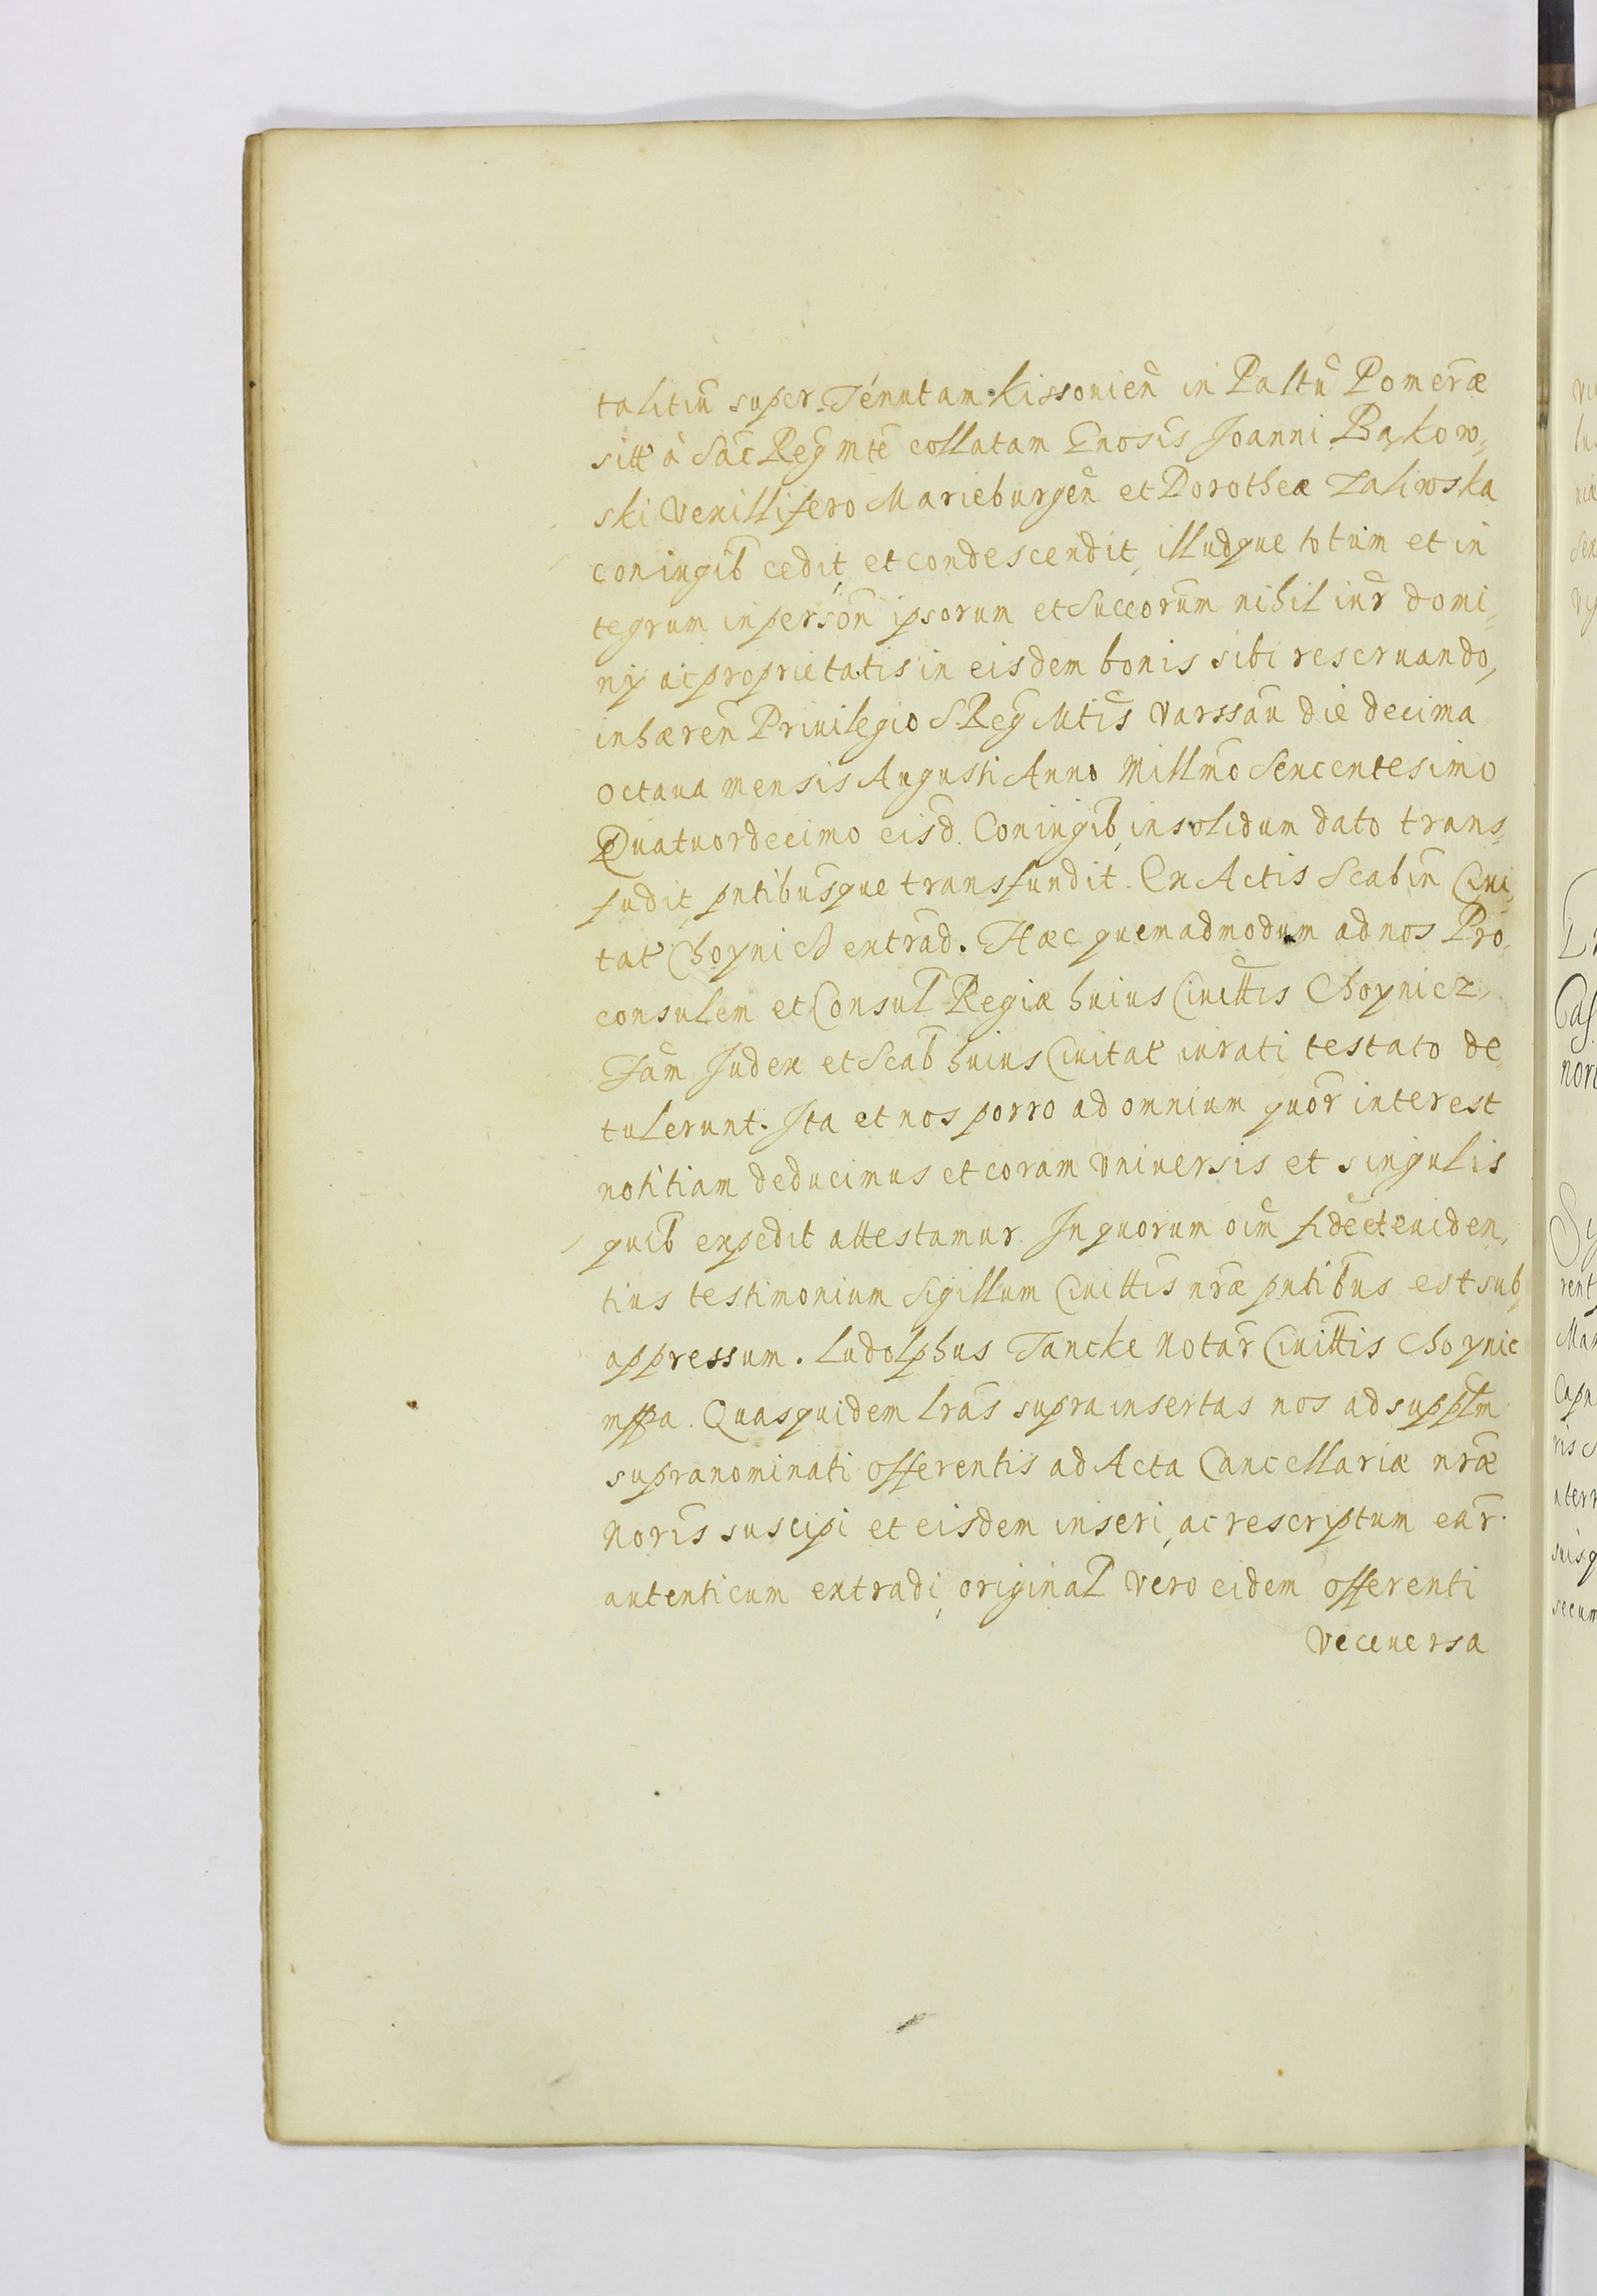 talitiũ super Tenutam Kissonień in Paltũ Pomeræ
sitt à Sac Reg Mte collatam Gnosis Joanni Bąkow„
ski Vexillifero Marieburgeñ et Dorotheæ Zaliwska
coniugib cedit, et condescendit, illudque totum et in
tegrum in person̄ ipsorum et Succorum nihil iur̄ domi„
nÿ ac proprietatis in eisdem bonis sibi reseruando,
inhæreñ Priuilegio S Reg Mtis Varssau die decima
octaua mensis Augusti Anno Millmo Sexcentesimo
Quatuordecimo eisd. Coniugib, in solidum dato trans„
fudit, pntibusque transfundit. Ex Actis Scabin Ciui„
tat Choynich extrad. Hæc quemadmodum ad nos Pro„
consulem et Consul Regiæ huius Ciuittis Choynicz
Fam Judex et Scab huius Ciuitat iurati testato de„
tulerunt. Ita et nos porro ad omnium quor̄ interest
notitiam deducimus et coram vniuersis et singulis
quib expedit attestamur. In quorum oim fide et euiden„
tius testimonium Sigillum Ciuittis nr̄æ pntibus est sub
appressum. Ludolphus Tancke Notar̄ Ciuittis Choynic
mppa. Quasquidem Lr̄as suprainsertas nos ad supplm
supranominati offerentis ad Acta Cancellariæ nr̄æ
Noris suscipi et eisdem inseri, ac rescriptum ear̄.
autenticum extradi, original vero eidem offerenti
viceuersa